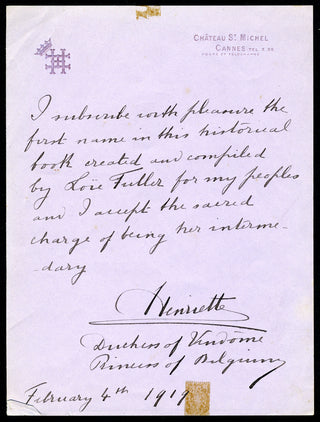 CHÂTEAU ST MICHEL
CANNES TEL 3.36
POSTE ET TÉLÉGRAPHE
I subscribe with pleasure the
first name in this historical
book created and compiled
by Loïe Fuller for my peoples
and I accept the sacred
charge of being her interme-
-dary
Henriette
Duchess of Vendôme
Princess of Belgium
February 4th 1919